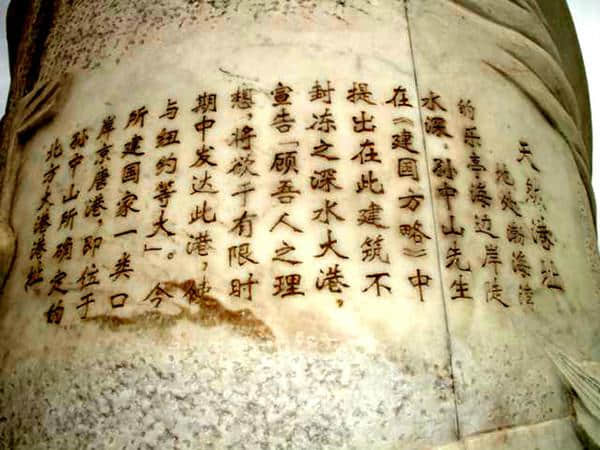 天然港址
地处渤海湾
的乐亭海边岸陡
水深，孙中山先生
在《建国方略》中
提出在此建筑不
封冻之深水大港，
宣告「顾吾人之理
想，将欲于有限时
期中发达此港，使
与纽约等大」。今
所建国家一类口
岸京唐港，即位于
孙中山所确定的
北方大港港址。